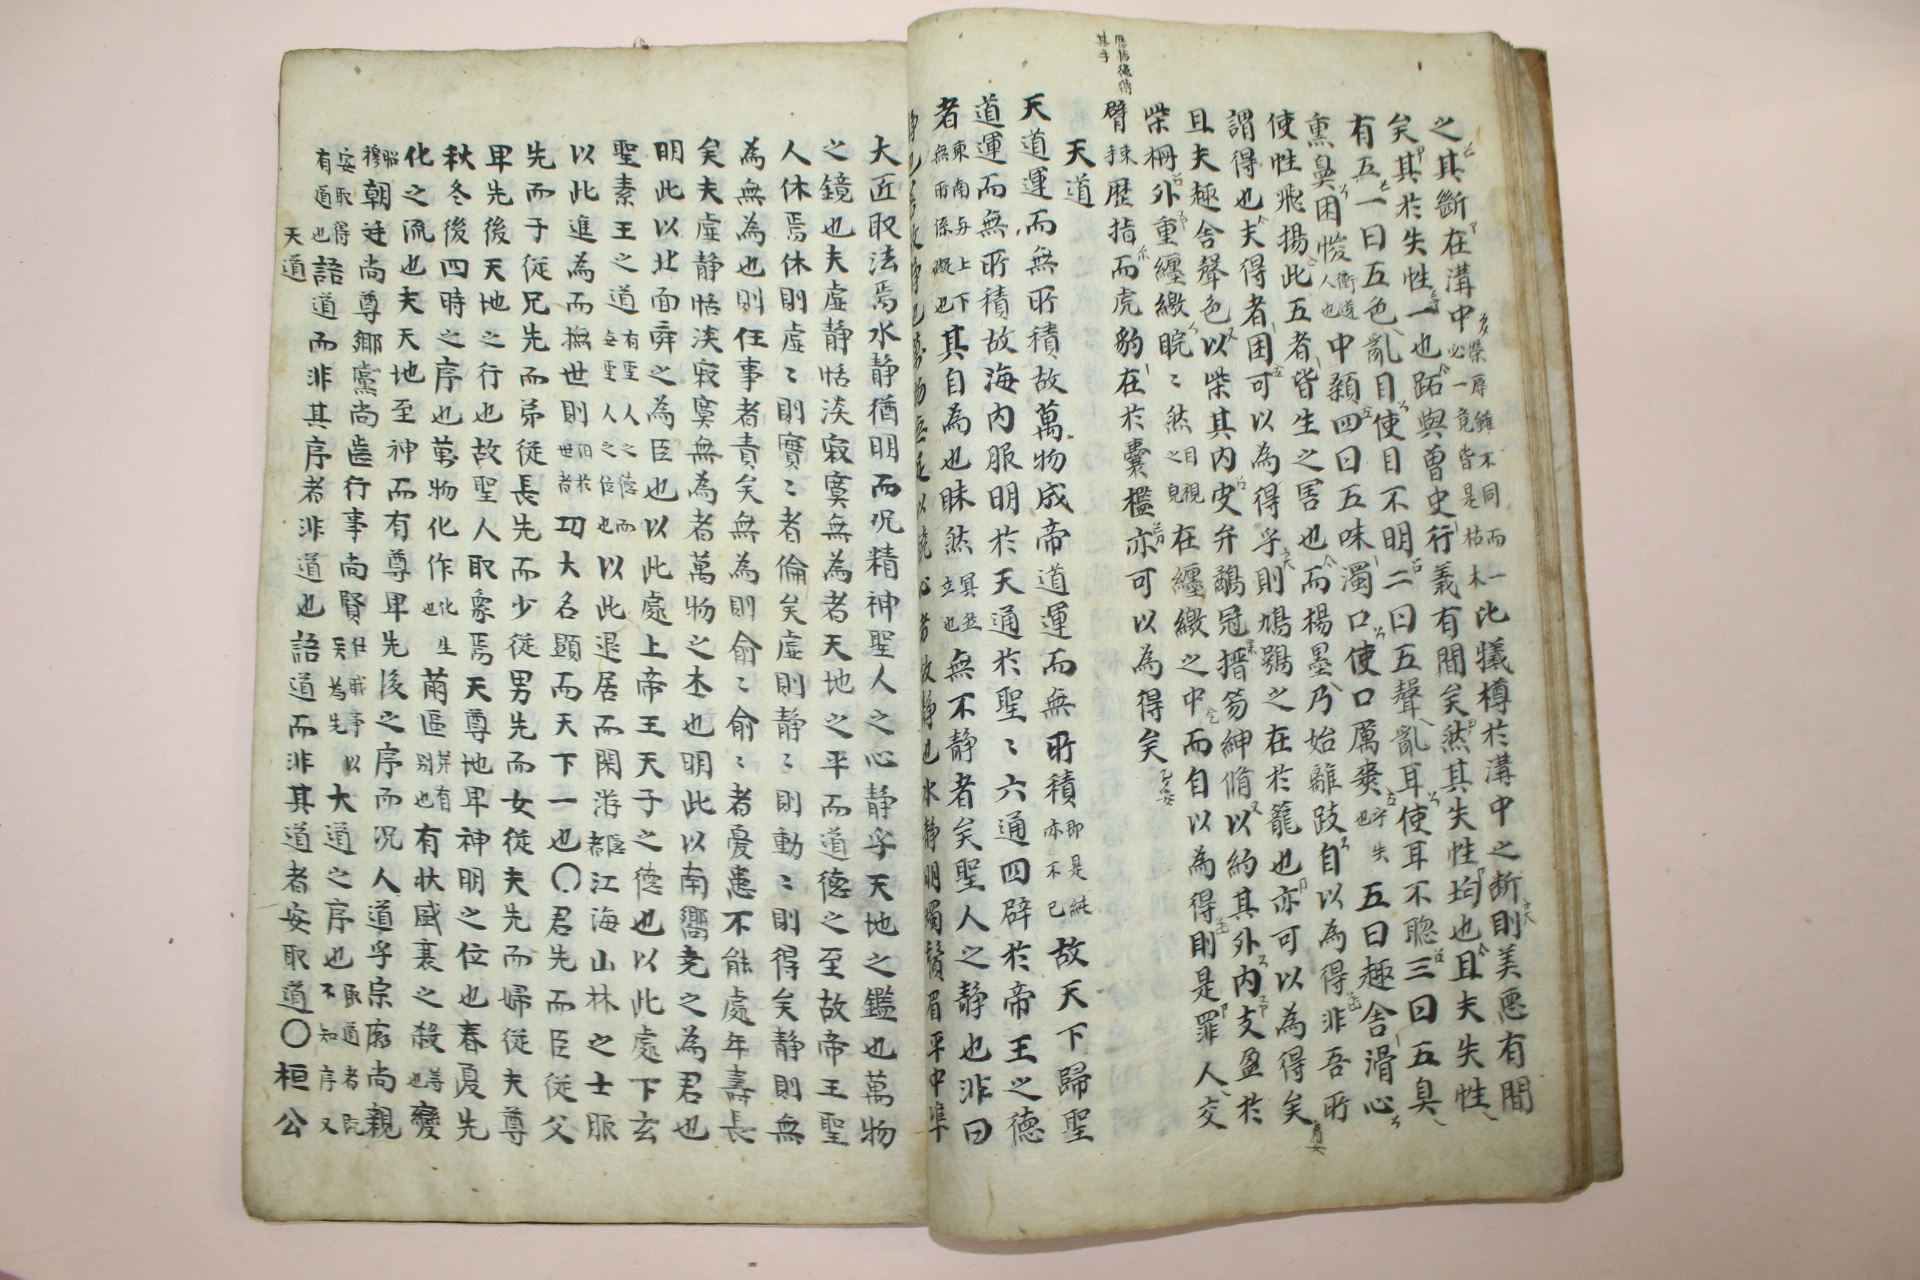 之其斷在溝中必一竟皆是枯木多榮辱雖不同而一比犧樽於溝中之斷則美惡有間
矣其於失性一也跖與曾史行義有間矣然其失性均也且夫失性
有五一曰五色亂目使目不明二曰五聲亂耳使耳不聰三曰五臭
熏鼻困惾衝逆人也中顙四曰五味濁口使口厲爽失也五曰趣舍滑心
使性飛揚此五者皆生之害也而楊墨乃始離跂自以為得非吾所
謂得也夫得者困可以為得乎則鳩鴞之在於籠也亦可以為得矣
且夫趣舍聲色以柴其內皮弁鷸冠搢笏紳脩以約其外內支盈於
柴柵外重纆繳睆〻然目視之皃在纆繳之中而自以為得則是罪人交
臂歷指而虎豹在於囊檻亦可以為得矣
天道
天道運而無所積故萬物成帝道運而無所積即是純亦不已故天下歸聖
道運而無所積故海內服明於天通於聖〻六通四辟於帝王之德
者東南与上下無所係礙也其自為也昧然冥然立也無不靜者矣聖人之靜也非曰
水靜明燭鬚眉平中準
大匠取法焉水靜猶明而況精神聖人之心靜乎天地之鑑也萬物
之鏡也夫虛靜恬淡寂寞無為者天地之平而道德之至故帝王聖
人休焉休則虛〻則實〻者倫矣虛則靜〻則動〻則得矣靜則無
為無為也則任事者責矣無為則俞〻俞〻者憂患不能處年壽長
矣夫虛靜恬淡寂寞無為者萬物之本也明此以南嚮堯之為君也
明此以北面舜之為臣也以此處上帝王天子之德也以此處下玄
聖素王之道有聖人之德而無聖人之位也以此退居而閑游江海山林之士服
以此進為而撫世則功大名顯而天下一也〇君先而臣從父
先而子從兄先而弟從長先而少從男先而女從夫先而婦從夫尊
卑先後天地之行也故聖人取象焉天尊地卑神明之位也春夏先
秋冬後四時之序也萬物化作化生也萌區別也有狀盛衰之殺等也變
化之流也夫天地至神而有尊卑先後之序而況人道乎宗廟尚親
朝廷尚尊鄉黨尚齒行事尚賢大道之序也
安取得有道也語道而非其序者非道也語道而非其道者安取道〇桓公
天道